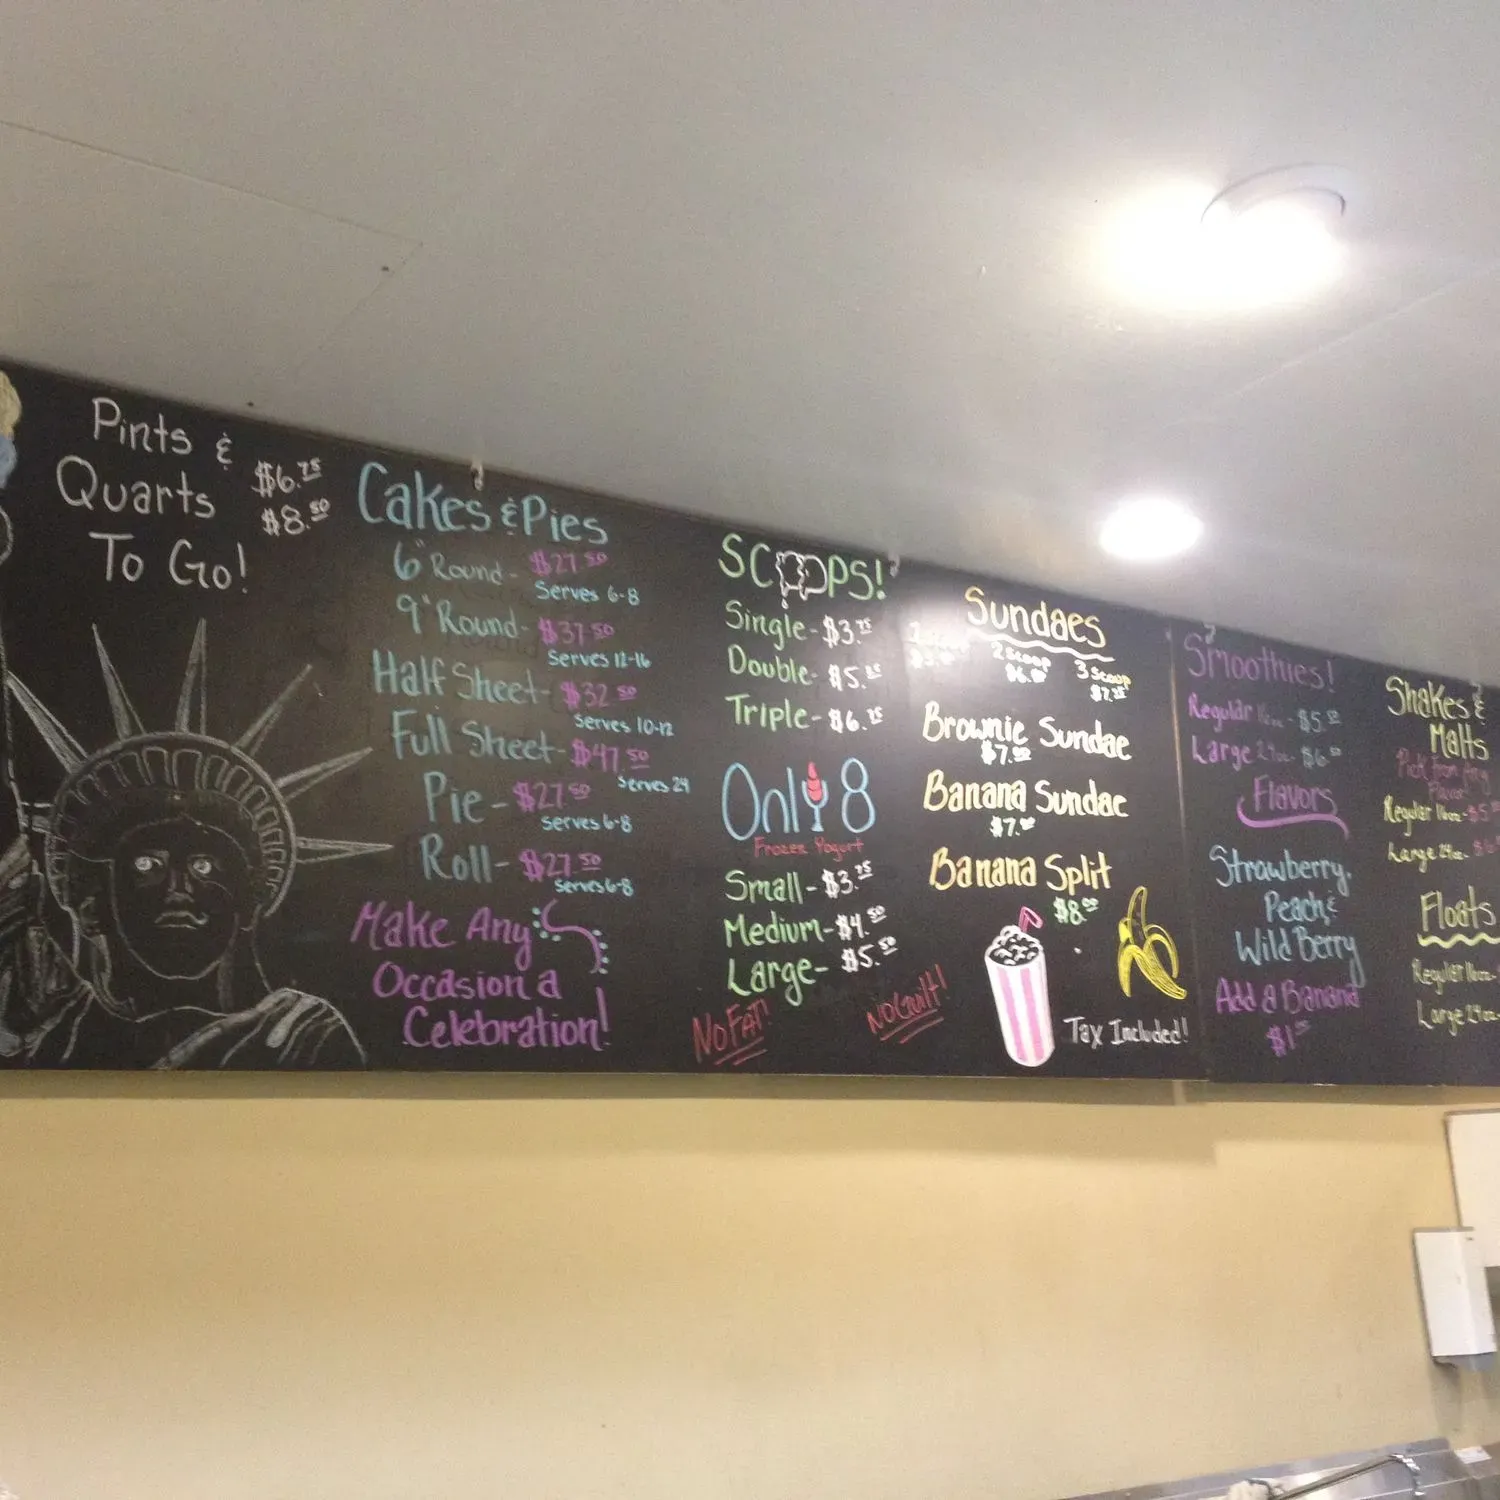 Pints &
Quarts $6.75
$8.50
To Go!
Cakes & Pies
6" Round - $27.50
Serves 6-8
9" Round - $37.50
Serves 12-16
Half Sheet - $32.50
Serves 10-12
Full Sheet - $47.50
Serves 24
Pie - $27.50
Serves 6-8
Roll - $27.50
Serves 6-8
Make Any
Occasion a
Celebration!
SCOOPS!
Single - $3.75
Double - $5.25
Triple - $6.25
Only 8
Frozen Yogurt
Small - $3.75
Medium - $4.50
Large - $5.50
No Fat!
No Guilt!
Sundaes
2 Scoop 3 Scoop
$7.25
Brownie Sundae
Banana Sundae
Banana Split
Tax Included!
Smoothies!
Regular
Large 24oz -
Flavors
Strawberry,
Peach, &
Wild Berry
Add a Banana
Shakes &
Malts
Pick From Any
Flavor!
Regular 16oz -
Large 24oz -
Floats
Regular 16oz
Large 24oz